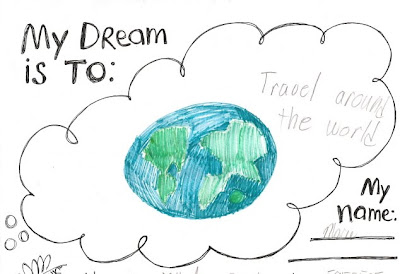 My DREAM
is TO:
Travel around
the world
My
name: